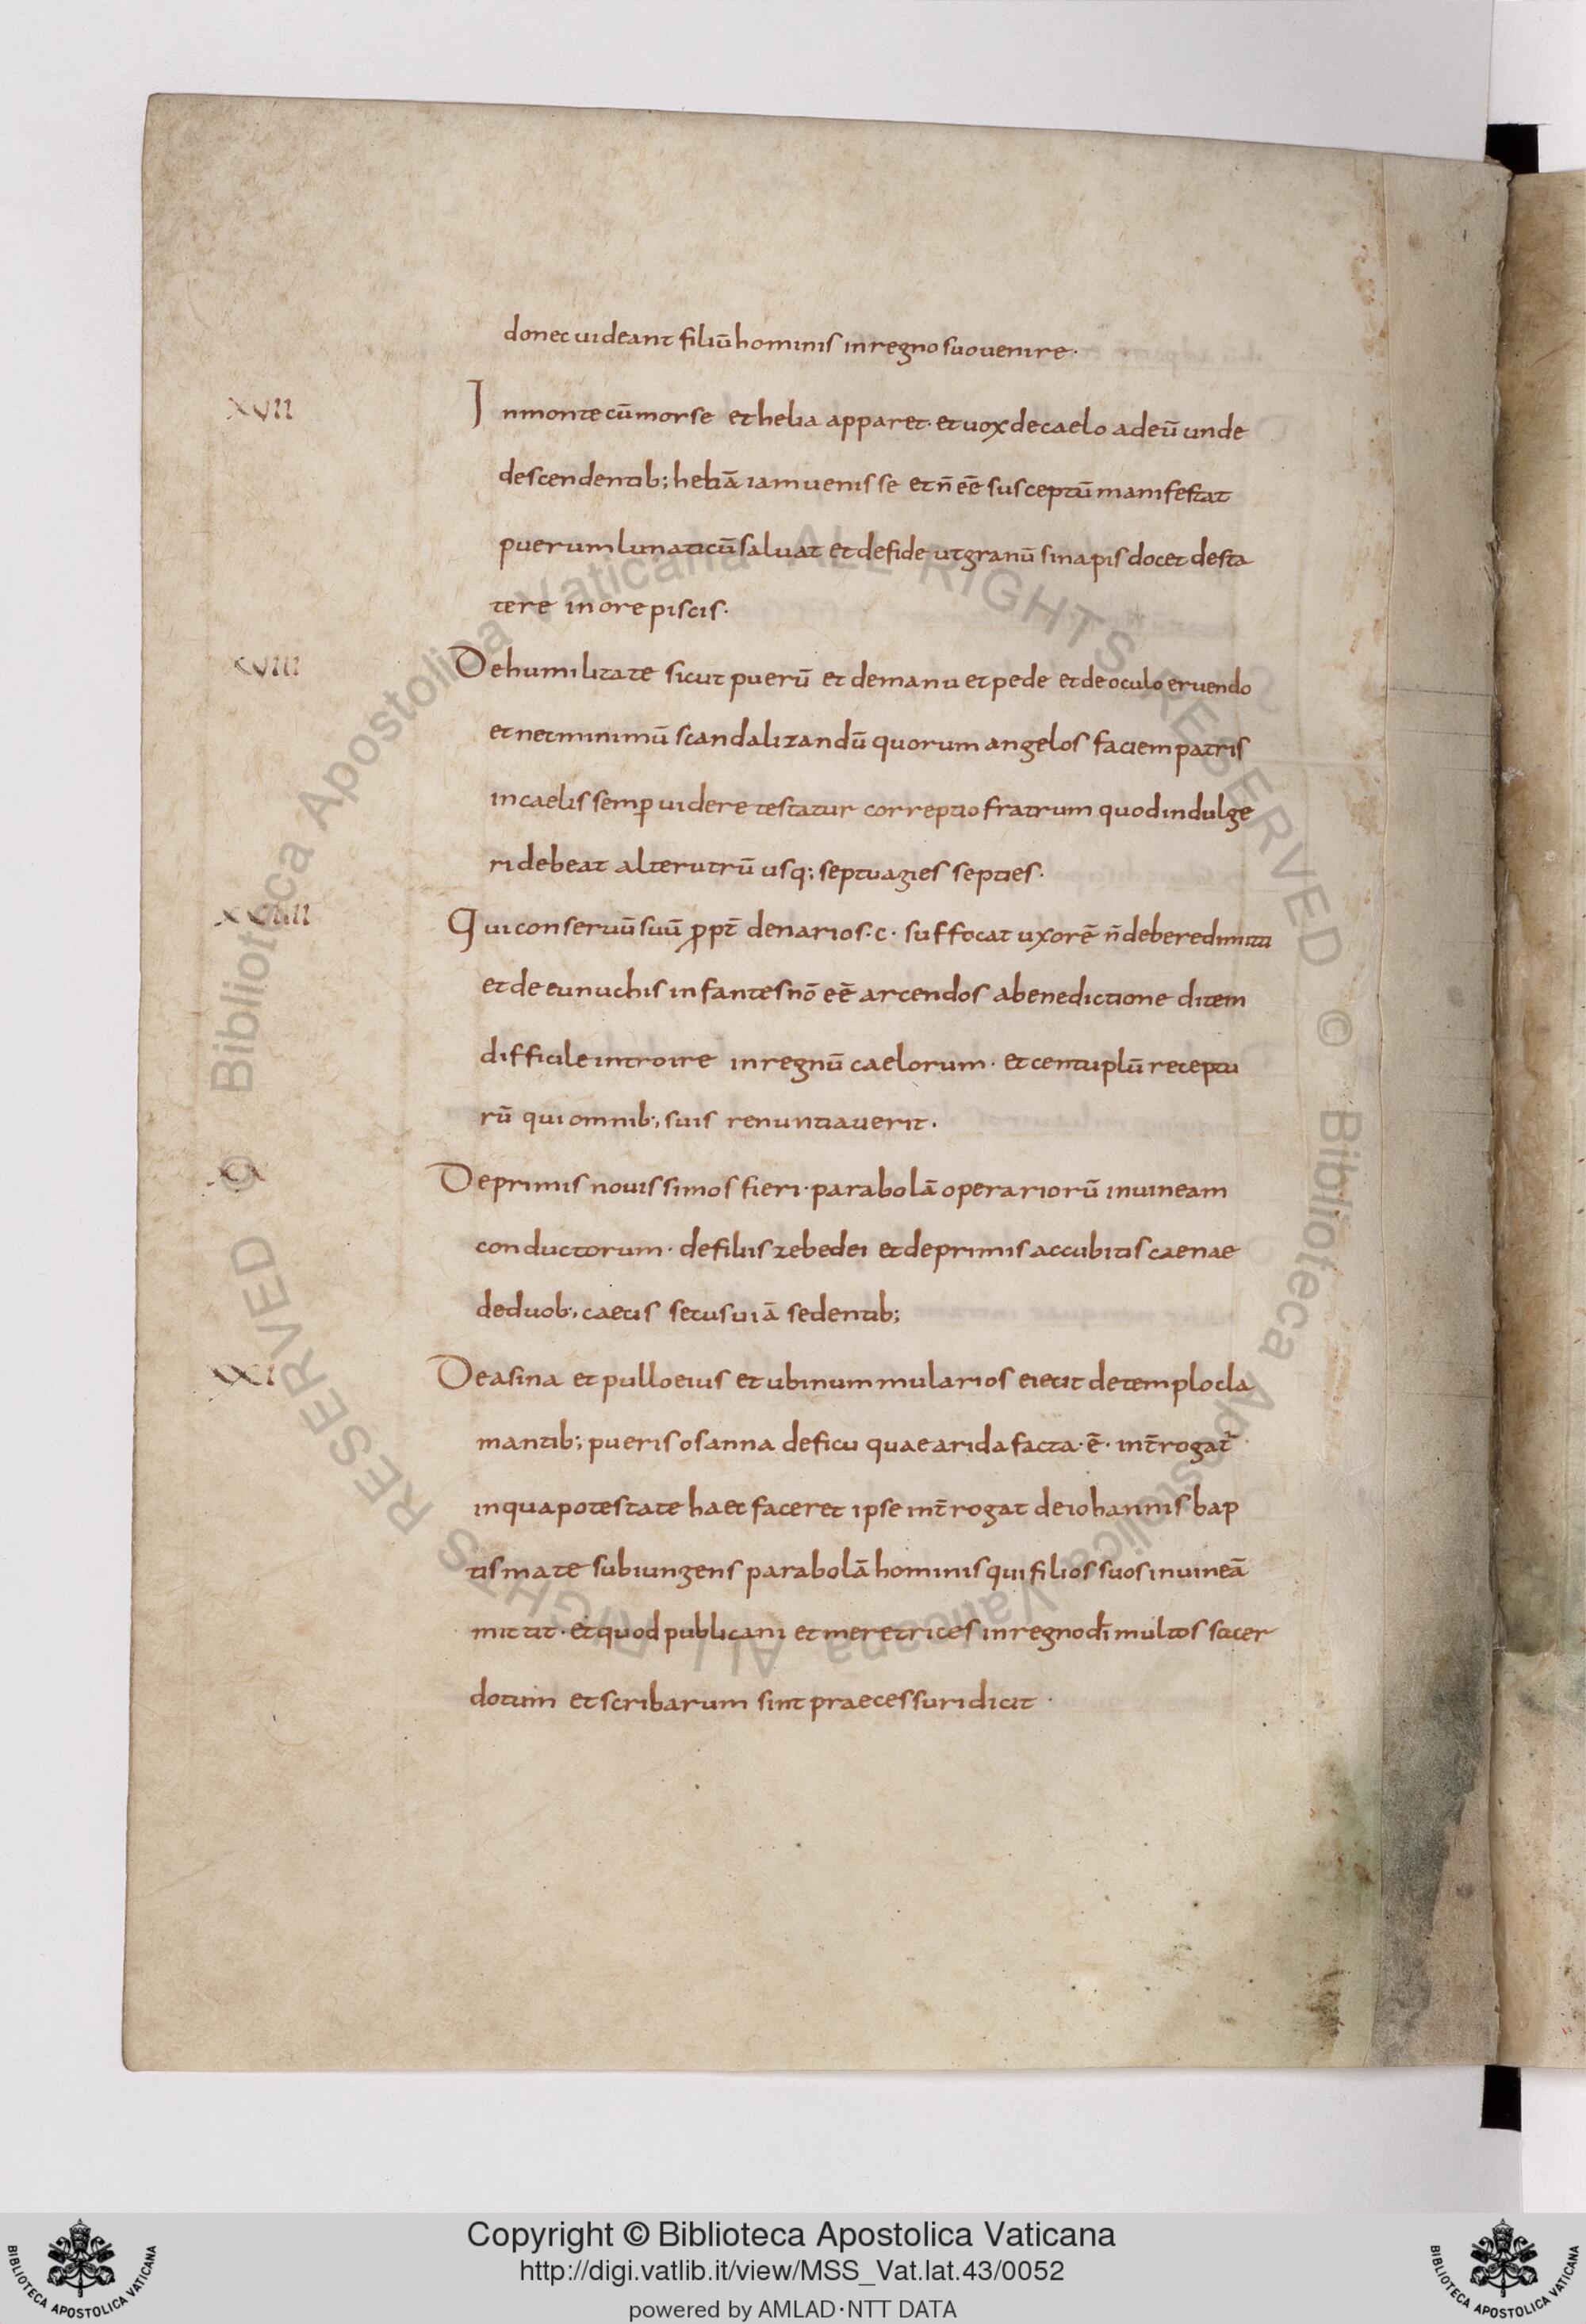 donec uideant filiū hominis in regno suo uenire·
XVII In monte cū moyse et helia apparet· et uox de caelo ad eū unde
descendentib; heliā iam uenisse et n̄ eē susceptū manifestat
puerum lunaticū saluat et de fide ut granū sinapis docet de sta
tere in ore piscis·
XVIII De humilitate sicut puerū et de manu et pede et de oculo eruendo
et nec minimū scandalizandū quorum angelos faciem patris
in caelis semꝑ uidere testatur correptio fratrum quod indulge
ri debeat alterutrū usq; septuagies septies·
XVIIII Qui conseruū suū ꝓpt̄ denarios·c· suffocat uxorē n̄ debere dimitti
et de eunuchis infantes nō eē arcendos a benedictione ditem
difficile introire in regnū caelorum· et centuplū receptu
rū qui omnib; suis renuntiauerit·
XX De primis nouissimos fieri· parabolā operariorū in uineam
conductorum· de filiis zebedei et de primis accubitis caenae
de duob; caecis secus uiā sedentib;
XXI De asina et pullo eius et ubi nummularios eiecit de templo cla
mantib; pueris osanna de ficu quae arida facta·ē· int̄rogat̄
in qua potestate haec faceret ipse int̄rogat de iohannis bap
tismate subiungens parabolā hominis qui filios suos in uineā
mittit· et quod publicani et meretrices in regno dī multos sacer
dotum et scribarum sint praecessuri dicit·
Copyright © Biblioteca Apostolica Vaticana
http://digi.vatlib.it/view/MSS_Vat.lat.43/0052
powered by AMLAD·NTT DATA
BIBLIOTECA APOSTOLICA VATICANA
BIBLIOTECA APOSTOLICA VATICANA
© Biblioteca Apostolica Vaticana ALL RIGHTS RESERVED
© Biblioteca Apostolica Vaticana ALL RIGHTS RESERVED